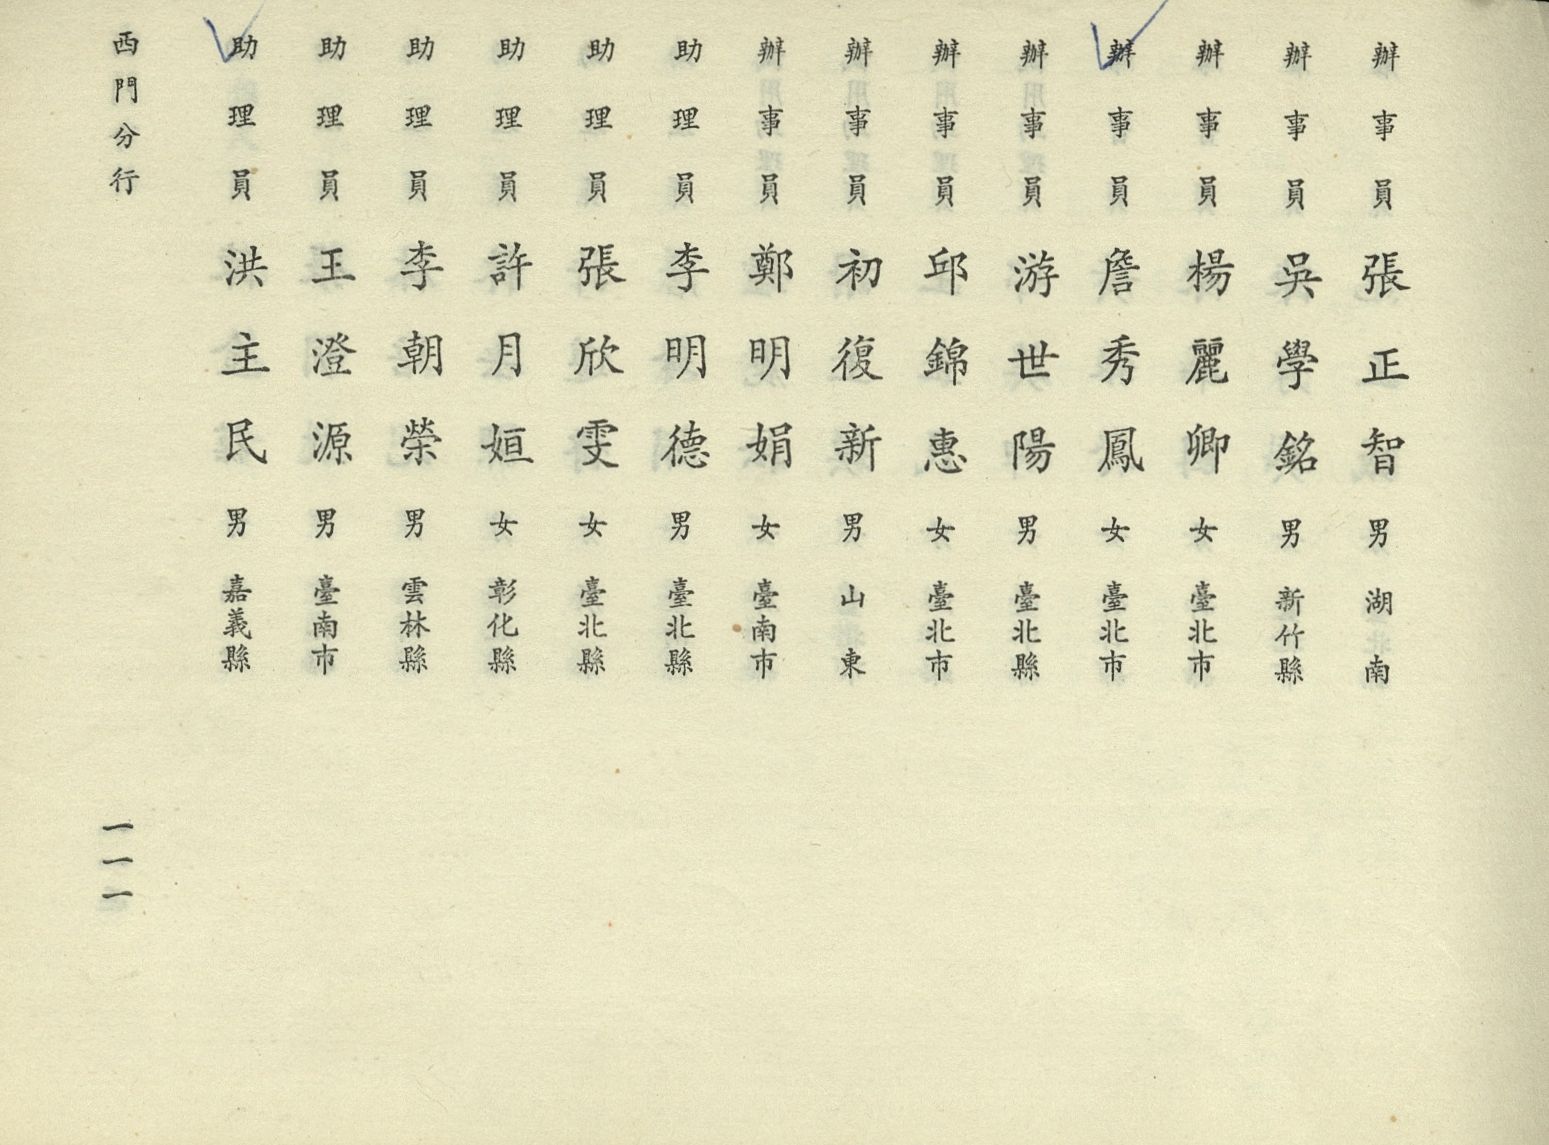 辦事員 張正智 男 湖南
辦事員 吳學銘 男 新竹縣
辦事員 楊麗卿 女 臺北市
辦事員 詹秀鳳 女 臺北市
辦事員 游世陽 男 臺北縣
辦事員 邱錦惠 女 臺北市
辦事員 初復新 男 山東
辦事員 鄭明娟 女 臺南市
助理員 李明德 男 臺北縣
助理員 張欣雯 女 臺北縣
助理員 許月姮 女 彰化縣
助理員 李朝榮 男 雲林縣
助理員 王澄源 男 臺南市
助理員 洪主民 男 嘉義縣
西門分行
一一一